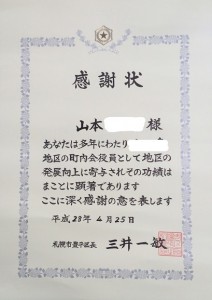 感謝状
山本 様
あなたは多年にわたり
地区の町内会役員として地区の
発展向上に寄与されその功績は
まことに顕著であります
ここに深く感謝の意を表します
平成28年4月25日
札幌市豊平区長 三井一敏